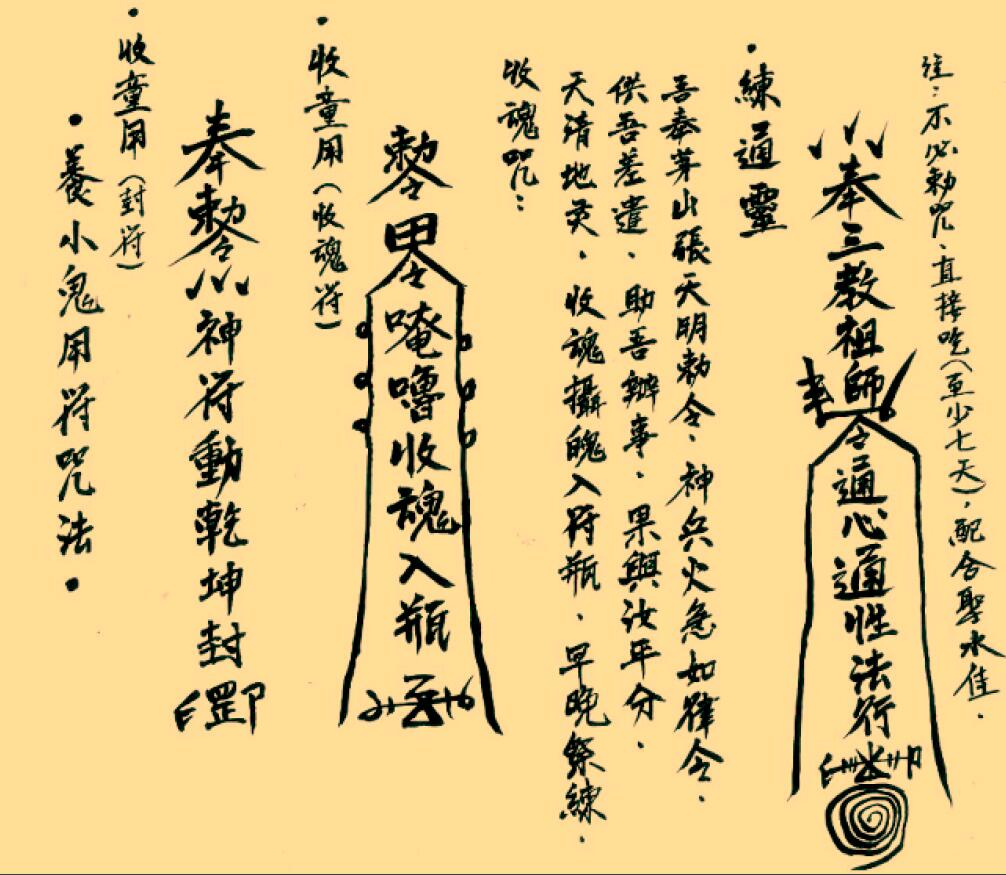 ・養小鬼用符咒法・
・收童用(封符)
奉勅令神符動乾坤封罡
・收童用(收魂符)
勅令甲令唵嚕收魂入瓶
收魂咒：
天清地灵．收魂攝魄入符瓶．早晚祭練．
供吾差遣．助吾辦事．果與汝年分．
吾奉茅山張天明勅令．神兵火急如律令．
・練通靈
奉三教祖師令通心通性法行
注：不必勅咒．直接吃(至少七天)．配合聖水佳．